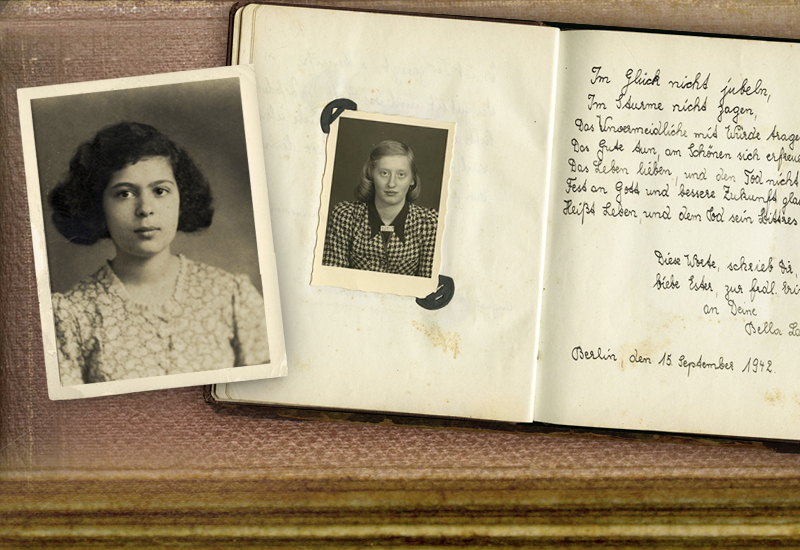 Im Glück nicht jubeln,
Im Sturme nicht zagen,
Das Unvermeidliche mit Würde trage
Das Gute tun, am Schönen sich erfreu
Das Leben lieben, und den Tod nicht
Fest an Gott und bessere Zukunft gla
Heißt Leben, und dem Tod sein Bittres
Diese Worte, schrieb Dir,
liebe Ester, zur frdl. Eri
an Deine
Bella La
Berlin, den 15. September 1942.